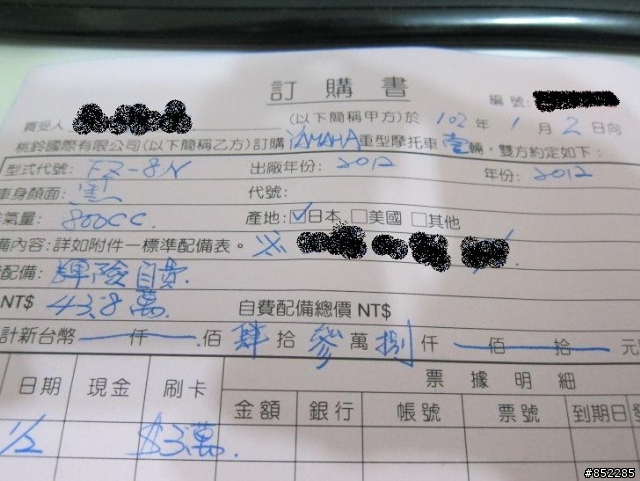 訂購書
編號:
買受人 (以下簡稱甲方)於 102年 1月 2日向
桃鈴國際有限公司(以下簡稱乙方)訂購 YAMAHA 重型摩托車 壹 輛，雙方約定如下：
型式代號: FZ-8N 出廠年份: 2012 年份: 2012
車身顏面: 黑 代號:
氣量: 800CC. 產地: ☑日本 □美國 □其他
備內容:詳如附件一標準配備表。
配備: 險自費
NT$ 43.8萬 自費配備總價 NT$
計新台幣 仟 佰 肆 拾 參 萬 捌 仟 佰 拾 元
日期 現金 刷卡 票據明細
金額 銀行 帳號 票號 到期日
1/2 $3萬.
#852285